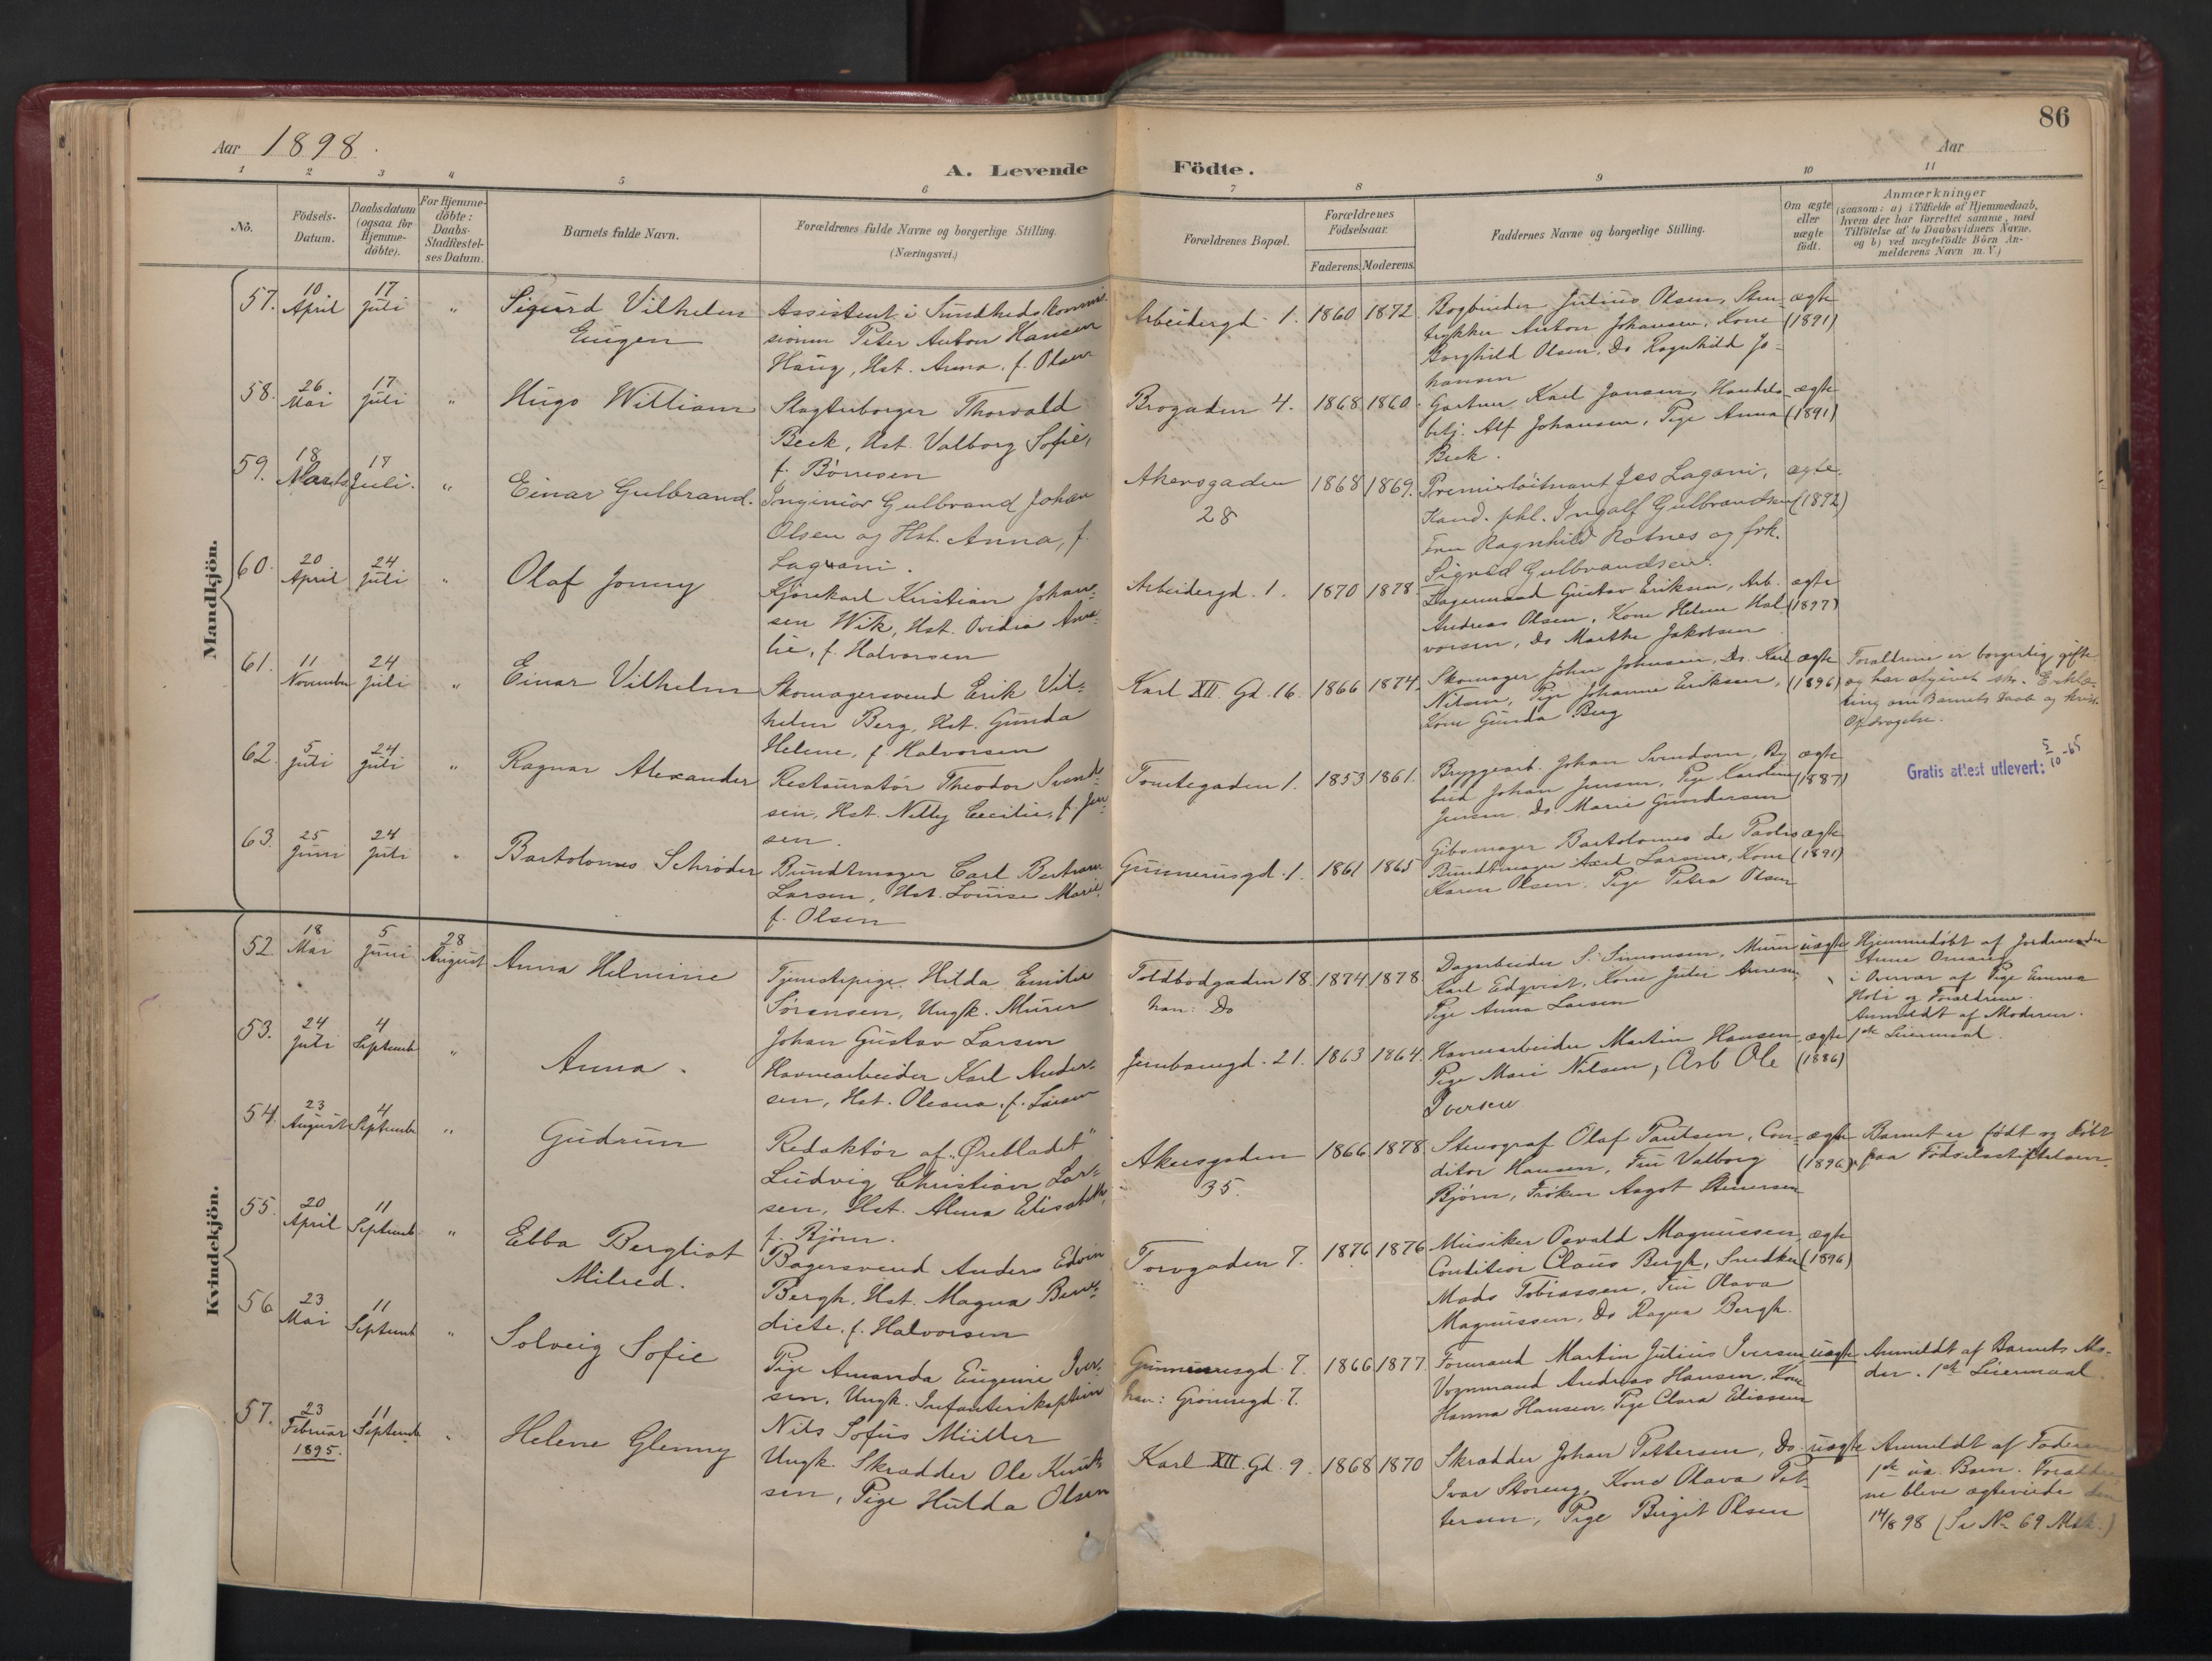 86
Aar 1898.
Aar
A. Levende Födte.
1 2 3 4 5 6 7 8 9 10 11
No.
Födsels-
Datum.
Daabsdatum
(ogsaa for
Hjemme-
döbte).
For Hjemme-
döbte:
Daabs-
Stadfæstel-
ses Datum.
Barnets fulde Navn.
Forældrenes fulde Navne og borgerlige Stilling.
(Næringsvei.)
Forældrenes Bopæl.
Forældrenes
Födselsaar.
Faderens. Moderens.
Faddernes Navne og borgerlige Stilling.
Om ægte
eller
uægte
födt.
Anmærkninger
(saasom: a) i Tilfælde af Hjemmedaab,
hvem der har forrettet samme, med
Tilföielse af to Daabsvidners Navne,
og b) ved uægtefödte Börn An-
melderens Navn m.V.)
Mandkjön.
57. 10 April 17 Juli "
Sigurd Vilhelm
Eugen
Assistent i Sundhedskommis-
sionen Peter Anton Hansen
Haug, Hst. Anna, f. Olsen
Arbeidergd. 1. 1860 1872
Bogbinder Julius Olsen, Sten-
trykker Anton Johansen, Kone
Borghild Olsen, Do Ragnhild Jo-
hansen
ægte
(1891)
58. 26 Mai 17 Juli "
Hugo William
Slagterborger Thorvald
Beck, Hst. Valborg Sofie,
f. Börresen
Brogaden 4. 1868 1860
Gartner Karl Jansen, Handels-
betj. Alf Johansen, Pige Anna
Beck.
ægte
(1891)
59. 18 Marts 17 Juli. "
Einar Gulbrand.
Ingeniör Gulbrand Johan
Olsen og Hst. Anna, f.
Lagwani.
Akersgaden
28
1868 1869.
Premierlöitnant Jes Lagani,
Kand. phl. Ingolf Gulbrandsen
Fru Ragnhild Rotnes og frk.
Sigrid Gulbrandsen.
ægte.
(1892)
60. 20 April 24 Juli "
Olaf Jonny
Kjörekarl Kristian Johan-
sen Wik, Hst. Ovidia Ama-
lie, f. Halvorsen
Arbeidergd. 1. 1870 1878
Lagermand Gustav Eriksen, Arb.
Andreas Olsen, Kone Helene Hal-
vorsen, Do Marthe Jakobsen
ægte
(1897)
61. 11 November 24 Juli "
Einar Vilhelm
Skomagersvend Erik Vil-
helm Berg, Hst. Gunda
Helene, f. Halvorsen
Karl XII. Gd. 16. 1866 1874.
Skomager Johan Johnsen, Do. Karl
Nilsen, Pige Johanne Eriksen,
Kone Gunda Berg
ægte
(1896)
Forældrene er borgerlig gifte
og har afgivet skr. Erklæ-
ring om Barnets Daab og krist.
Opdragelse.
62. 5 Juli 24 Juli "
Ragnar Alexander
Restauratör Theodor Svend-
sen, Hst. Nelly Cecilie, f. Jen-
sen.
Tomtegaden 1. 1853 1861.
Bryggearb. Johan Svendsen, By-
bud Johan Jensen, Pige Karoline
Jensen, Do. Marie Gundersen
ægte
(1887)
Gratis attest utlevert: 5/10-65
63. 25 Juni 24 Juli "
Bartolomes Schröder
Bundtmager Carl Bertram
Larsen, Hst. Louise Marie,
f. Olsen
Gunnerusgd. 1. 1861 1865
Gibsmager Bartolomes de Paolis
Bundtmager Axel Larsen, Kone
Karen Olsen, Pige Petra Olsen
ægte
(1891)
Kvindekjön.
52. 18 Mai 5 Juni 28 August
Anna Helmine
Tjenestepige Hilda Emilie
Sörensen, Ungk. Murer
Johan Gustav Larsen
Toldbodgaden 18.
han: Do
1874 1878
Dagarbeider S. Simonsen, Murer
Karl Edqvist, Kone Julie
Pige Anna Larsen
uægte
Hjemmedöbt af Jordemoder
Anne
i Overvær af Pige Emma
Holi og Forældrene.
Anmeldt af Moderen.
1ste Leiermaal.
53. 24 Juli 4 Septemb "
Anna.
Havnearbeider Karl Ander-
sen, Hst. Oleana, f. Larsen
Jernbanegd. 21. 1863 1864.
Havnearbeider Martin Hansen
Pige Mari Nilsen, Arb Ole
Iversen
ægte
(1886)
54. 23 August 4 Septemb "
Gudrun
Redaktör af „Örebladet"
Ludvig Christian Lar-
sen, Hst. Alma Elisabeth,
f. Björn.
Akersgaden
35.
1866 1878
Stenograf Olaf Paulsen, Con-
ditor Hansen, Fru Valborg
Björn, Fröken Aagot Stenersen
ægte
(1896)
Barnet er födt og döbt
paa Födselsstiftelsen.
55. 20 April 11 Septemb "
Ebba Bergliot
Milred.
Bagersvend Anders Edvin
Bergh, Hst. Magna Bene-
dicte, f. Halvorsen
Torvgaden 7. 1876 1876
Musiker Osvald Magnussen
Conditior Claus Bergh, Snedker
Mads Tobiassen, Fru Olava
Magnussen, Do Ragna Bergh.
ægte
(1896)
56. 23 Mai 11 Septemb "
Solveig Sofie
Pige Amanda Eugenie Iver-
sen, Ungk. Infanterikaptein
Nils Sofus Müller
Gunnerusgd. 7.
han: Grönnegd. 7.
1866 1877.
Formand Martin Julius Iversen
Vognmand Andreas Hansen, Kone
Hanna Hansen, Pige Clara Eliassen
uægte
Anmeldt af Barnets Mo-
der. 1ste Leiermaal.
57. 23 Februar 1895. 11 Septemb "
Helene Glenny
Ungk. Skrædder Ole Knut-
sen, Pige Hulda Olsen
Karl XII. Gd. 9. 1868 1870
Skrædder Johan Pettersen, Do
Ivar Storeng, Kone Olava Pet-
tersen, Pige Birgit Olsen
uægte
Anmeldt af Faderen
1ste uæ. Barn. Forældre-
ne bleve ægteviede den
14/8 98 (Se No 69 Msk.)